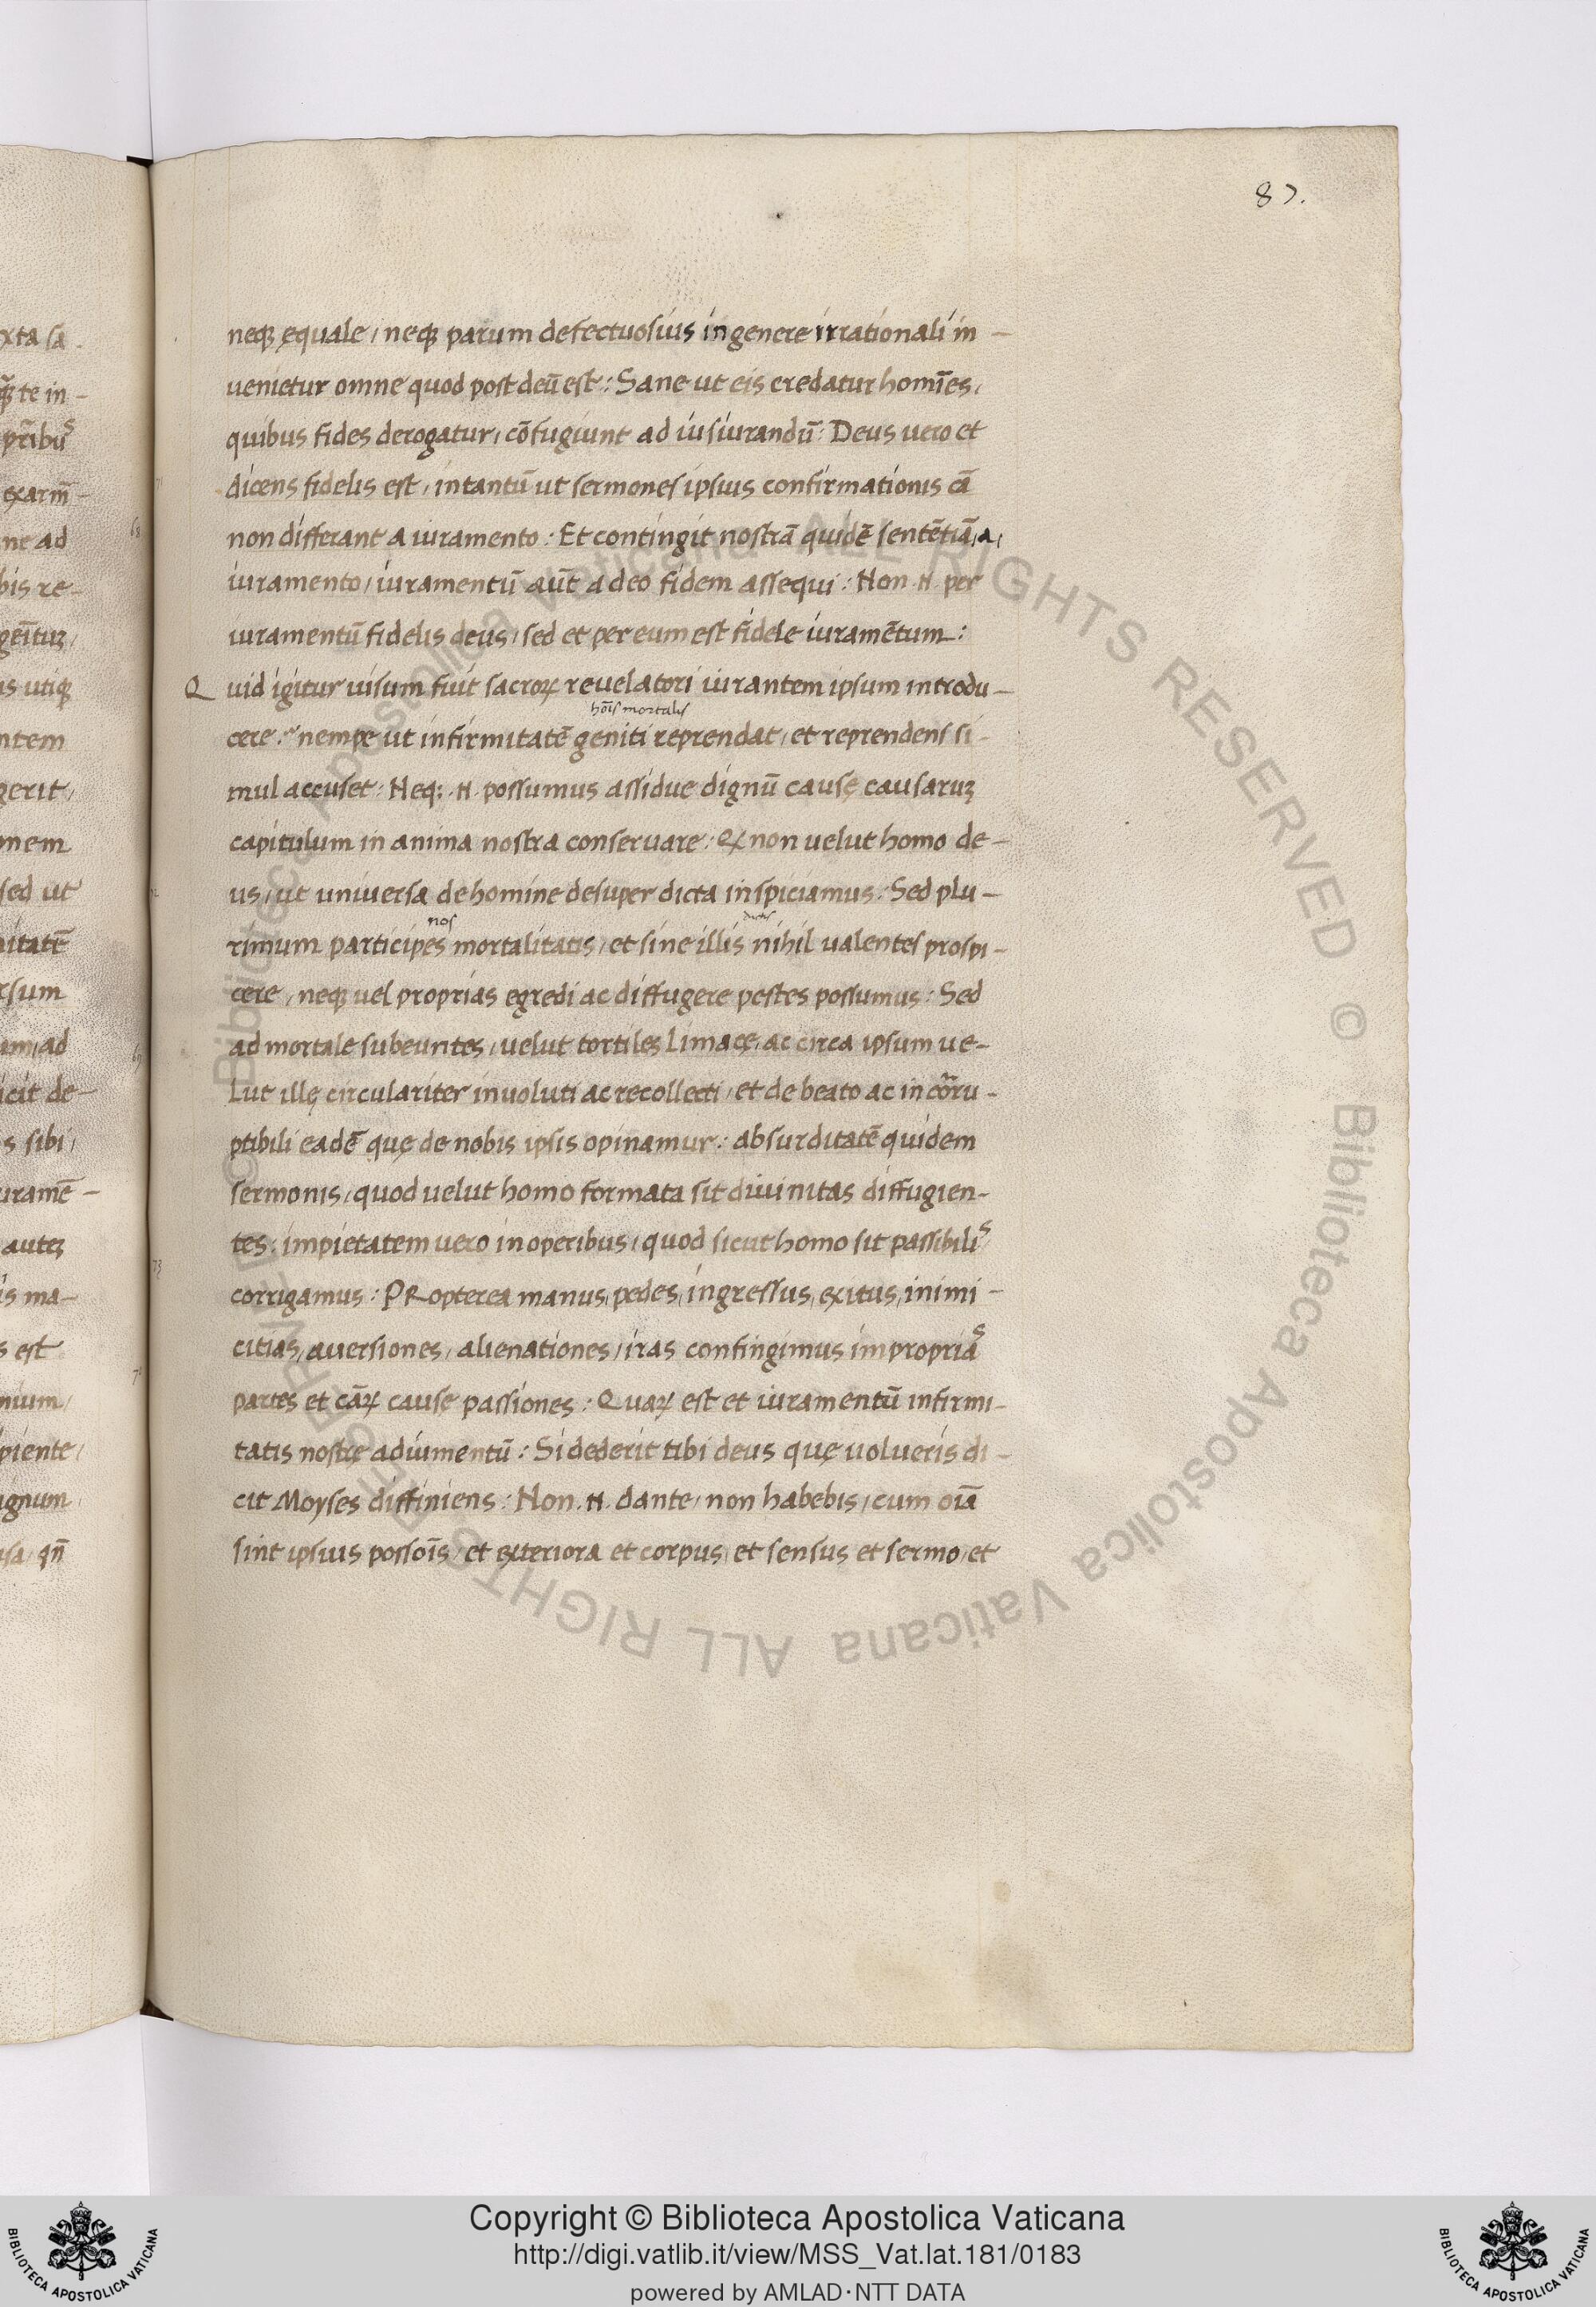 87.
neqꝫ ęquale, neqꝫ parum defectuosius in genere irrationali in-
uenietur omne quod post deū est: Sane ut eis credatur homīes,
quibus fides derogatur, cōfugiunt ad iusiurandū: Deus uero et
dicens fidelis est, intantū ut sermones ipsius confirmationis cā
non differant a iuramento: Et contingit nostrā quidē sentētiā, a,
iuramento, iuramentū aūt a deo fidem assequi: Non .N. per
iuramentū fidelis deus, sed et per eum est fidele iuramētum:
Quid igitur uisum fuit sacroꝝ reuelatori iurantem ipsum introdu-
hōis mortalis
cere? nempe ut infirmitatē geniti reprendat, et reprendens si-
mul accuset: Neq; .N. possumus assidue dignū causę causaruꝫ
capitulum in anima nostra conseruare: Qꝫ non uelut homo de-
us, ut uniuersa de homine desuper dicta inspiciamus: Sed plu-
nos
rimum participes mortalitatis, et sine illis nihil ualentes prospi-
cere, neqꝫ uel proprias egredi ac diffugere pestes possumus: Sed
ad mortale subeuntes, uelut tortiles limacę, ac circa ipsum ue-
lut illę circulariter inuoluti ac recollecti, et de beato ac in cōrru-
ptibili eadē quę de nobis ipsis opinamur: absurditatē quidem
sermonis, quod uelut homo formata sit diuinitas diffugien-
tes: impietatem uero in operibus, quod sicut homo sit passibilis
corrigamus: PRopterea manus, pedes, ingressus, exitus, inimi-
citias, auersiones, alienationes, iras confingimus improprias
partes et cāꝝ cause passiones: Quaꝝ est et iuramentū infirmi-
tatis nostrę adiumentū: Si dederit tibi deus quę uolueris di-
cit Moyses diffiniens: Non .N. dante, non habebis, cum oīa
sint ipsius possoīs, et exteriora et corpus, et sensus et sermo, et
xta sa
qꝫ te in-
pribus
exarm̄-
ne ad
bis re-
geītur,
is utiqꝫ
ntem
gerit,
onem
sed ut
nitatē
rsum
am, ad
icit de-
s sibi,
uramē-
autez
is ma-
s est
nium,
piente,
ignum
isa, qn̄
© Biblioteca Apostolica Vaticana ALL RIGHTS RESERVED © Biblioteca Apostolica Vaticana ALL RIGHTS RESERVED
Copyright © Biblioteca Apostolica Vaticana
http://digi.vatlib.it/view/MSS_Vat.lat.181/0183
powered by AMLAD·NTT DATA
BIBLIOTECA APOSTOLICA VATICANA
BIBLIOTECA APOSTOLICA VATICANA